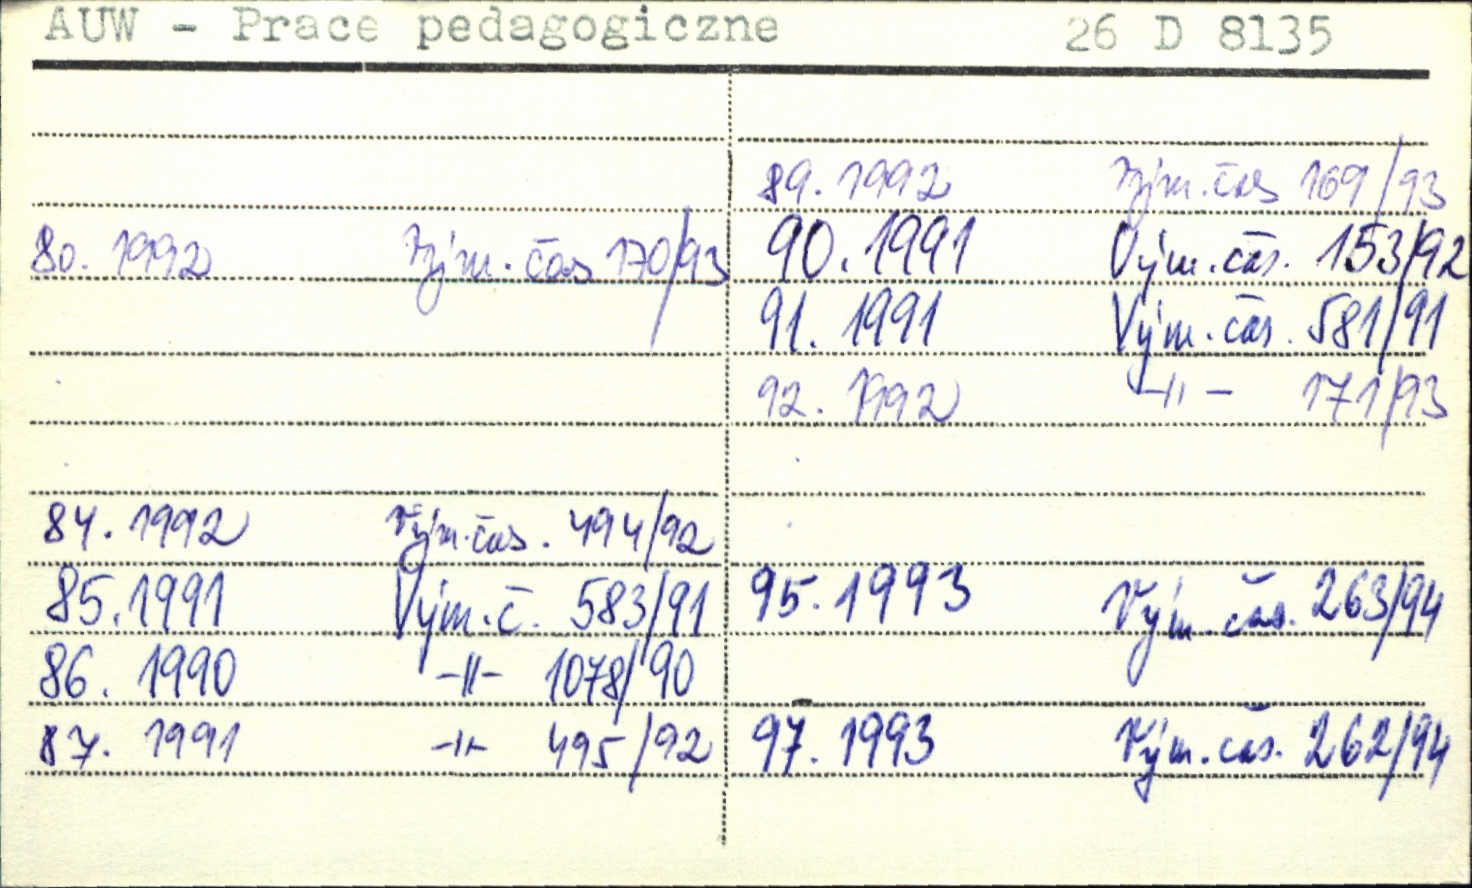 AUW - Prace pedagogiczne 26 D 8135
80. 1992 Vým. čas 170/93
84. 1992 Vým. čas. 494/92
85. 1991 Vým. č. 583/91
86. 1990 -||- 1078/90
87. 1991 -||- 495/92
89. 1992 Vým. čas 169/93
90. 1991 Vým. čas. 153/92
91. 1991 Vým. čas. 581/91
92. 1992 -||- 171/93
95. 1993 Vým. čas. 263/94
97. 1993 Vým. čas. 262/94